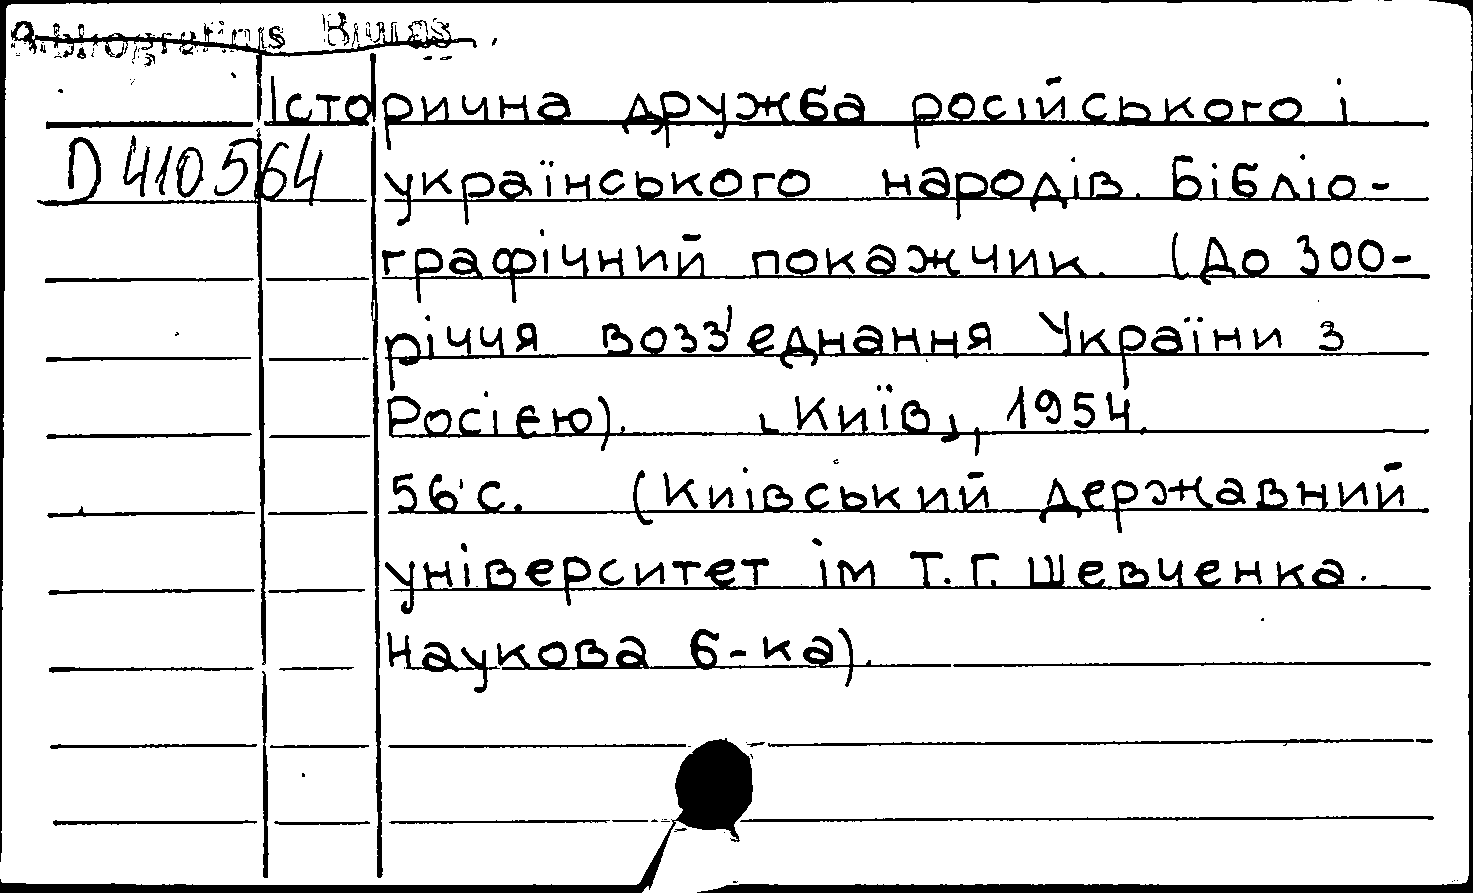 Bibliografinis Biuras
Історична дружба російського і
D 410564 українського народів. Бібліо-
графічний покажчик. (До 300-
річчя возз'єднання України з
Росією). ⌞Київ⌟, 1954.
56 с. (Київський державний
університет ім Т.Г. Шевченка.
Наукова б-ка).